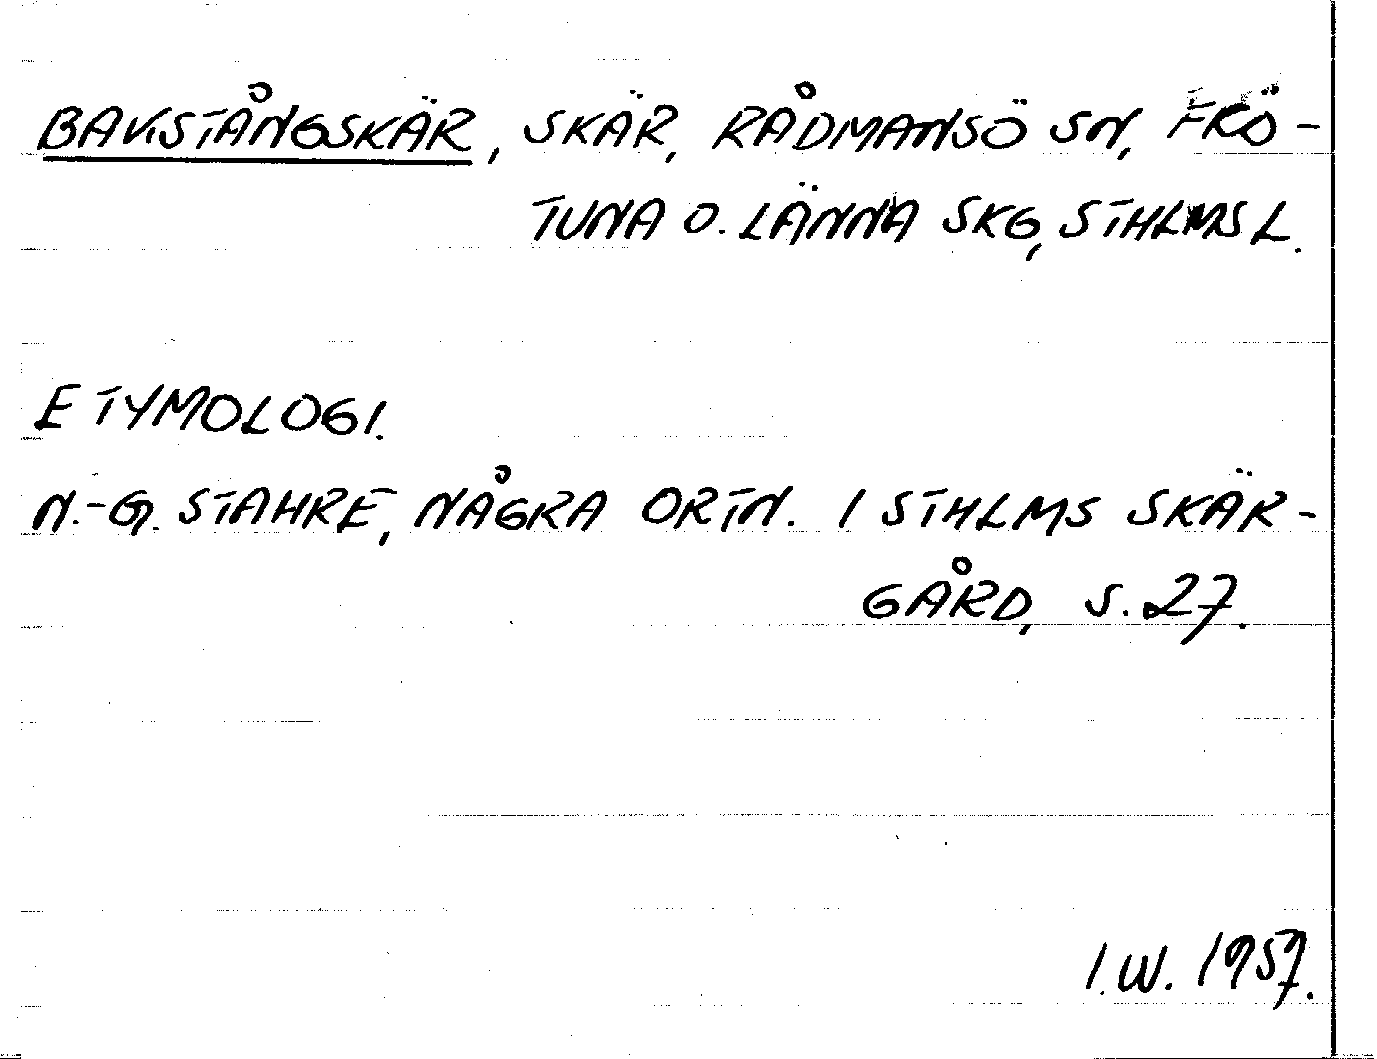 BAKSTÅNGSKÄR, SKÄR, RÅDMANSÖ SN, FRÖ-
TUNA O. LÄNNA SKG, STHLMS L.
ETYMOLOGI.
N.-G. STAHRE, NÅGRA ORTN. I STHLMS SKÄR-
GÅRD, S. 27.
I.W. 1957.